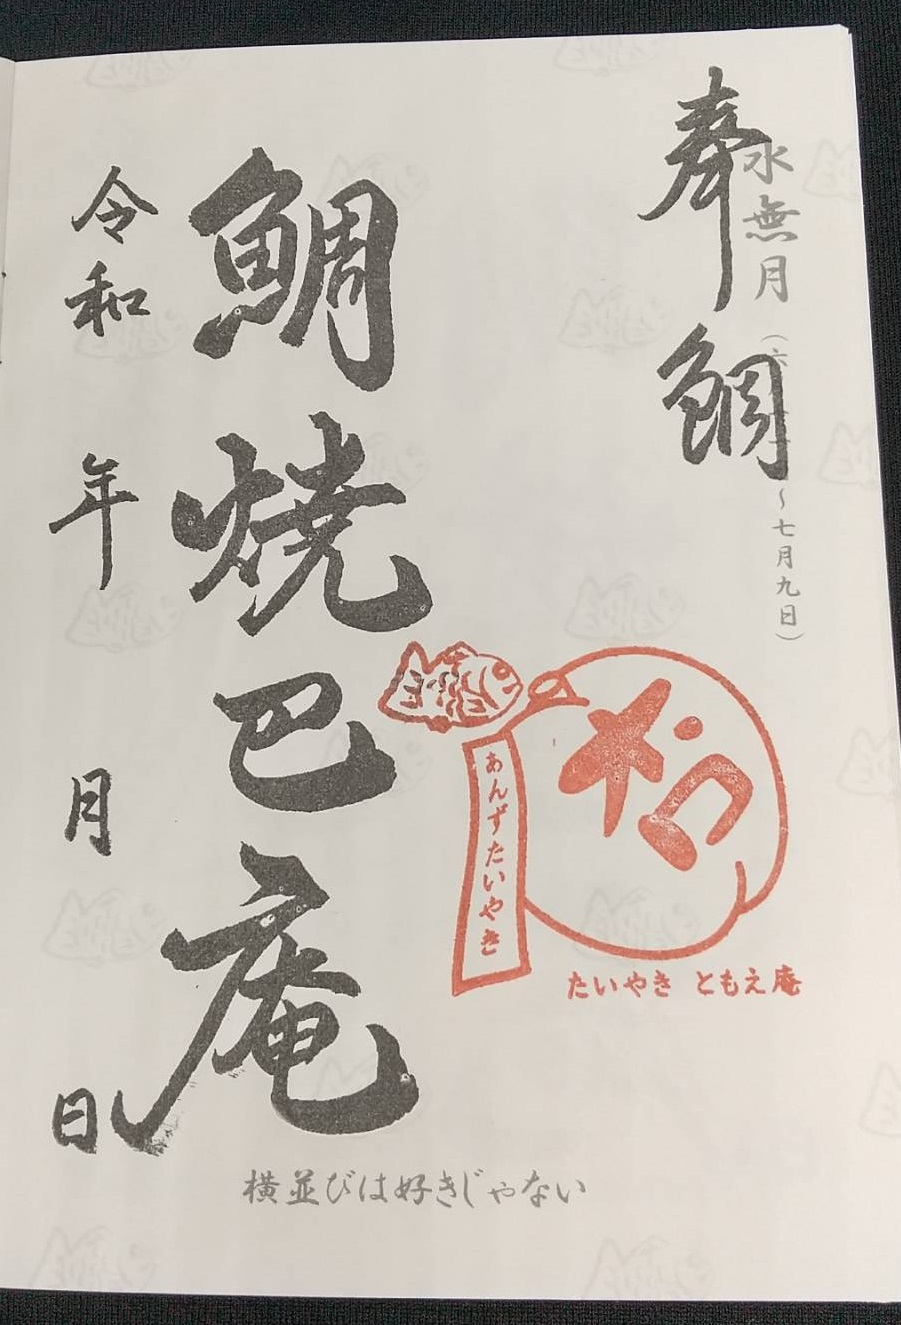 奉鯛
水無月
〜七月九日）
鯛焼巴庵
令和 年 月 日
あんずたいやき
たいやき ともえ庵
横並びは好きじゃない